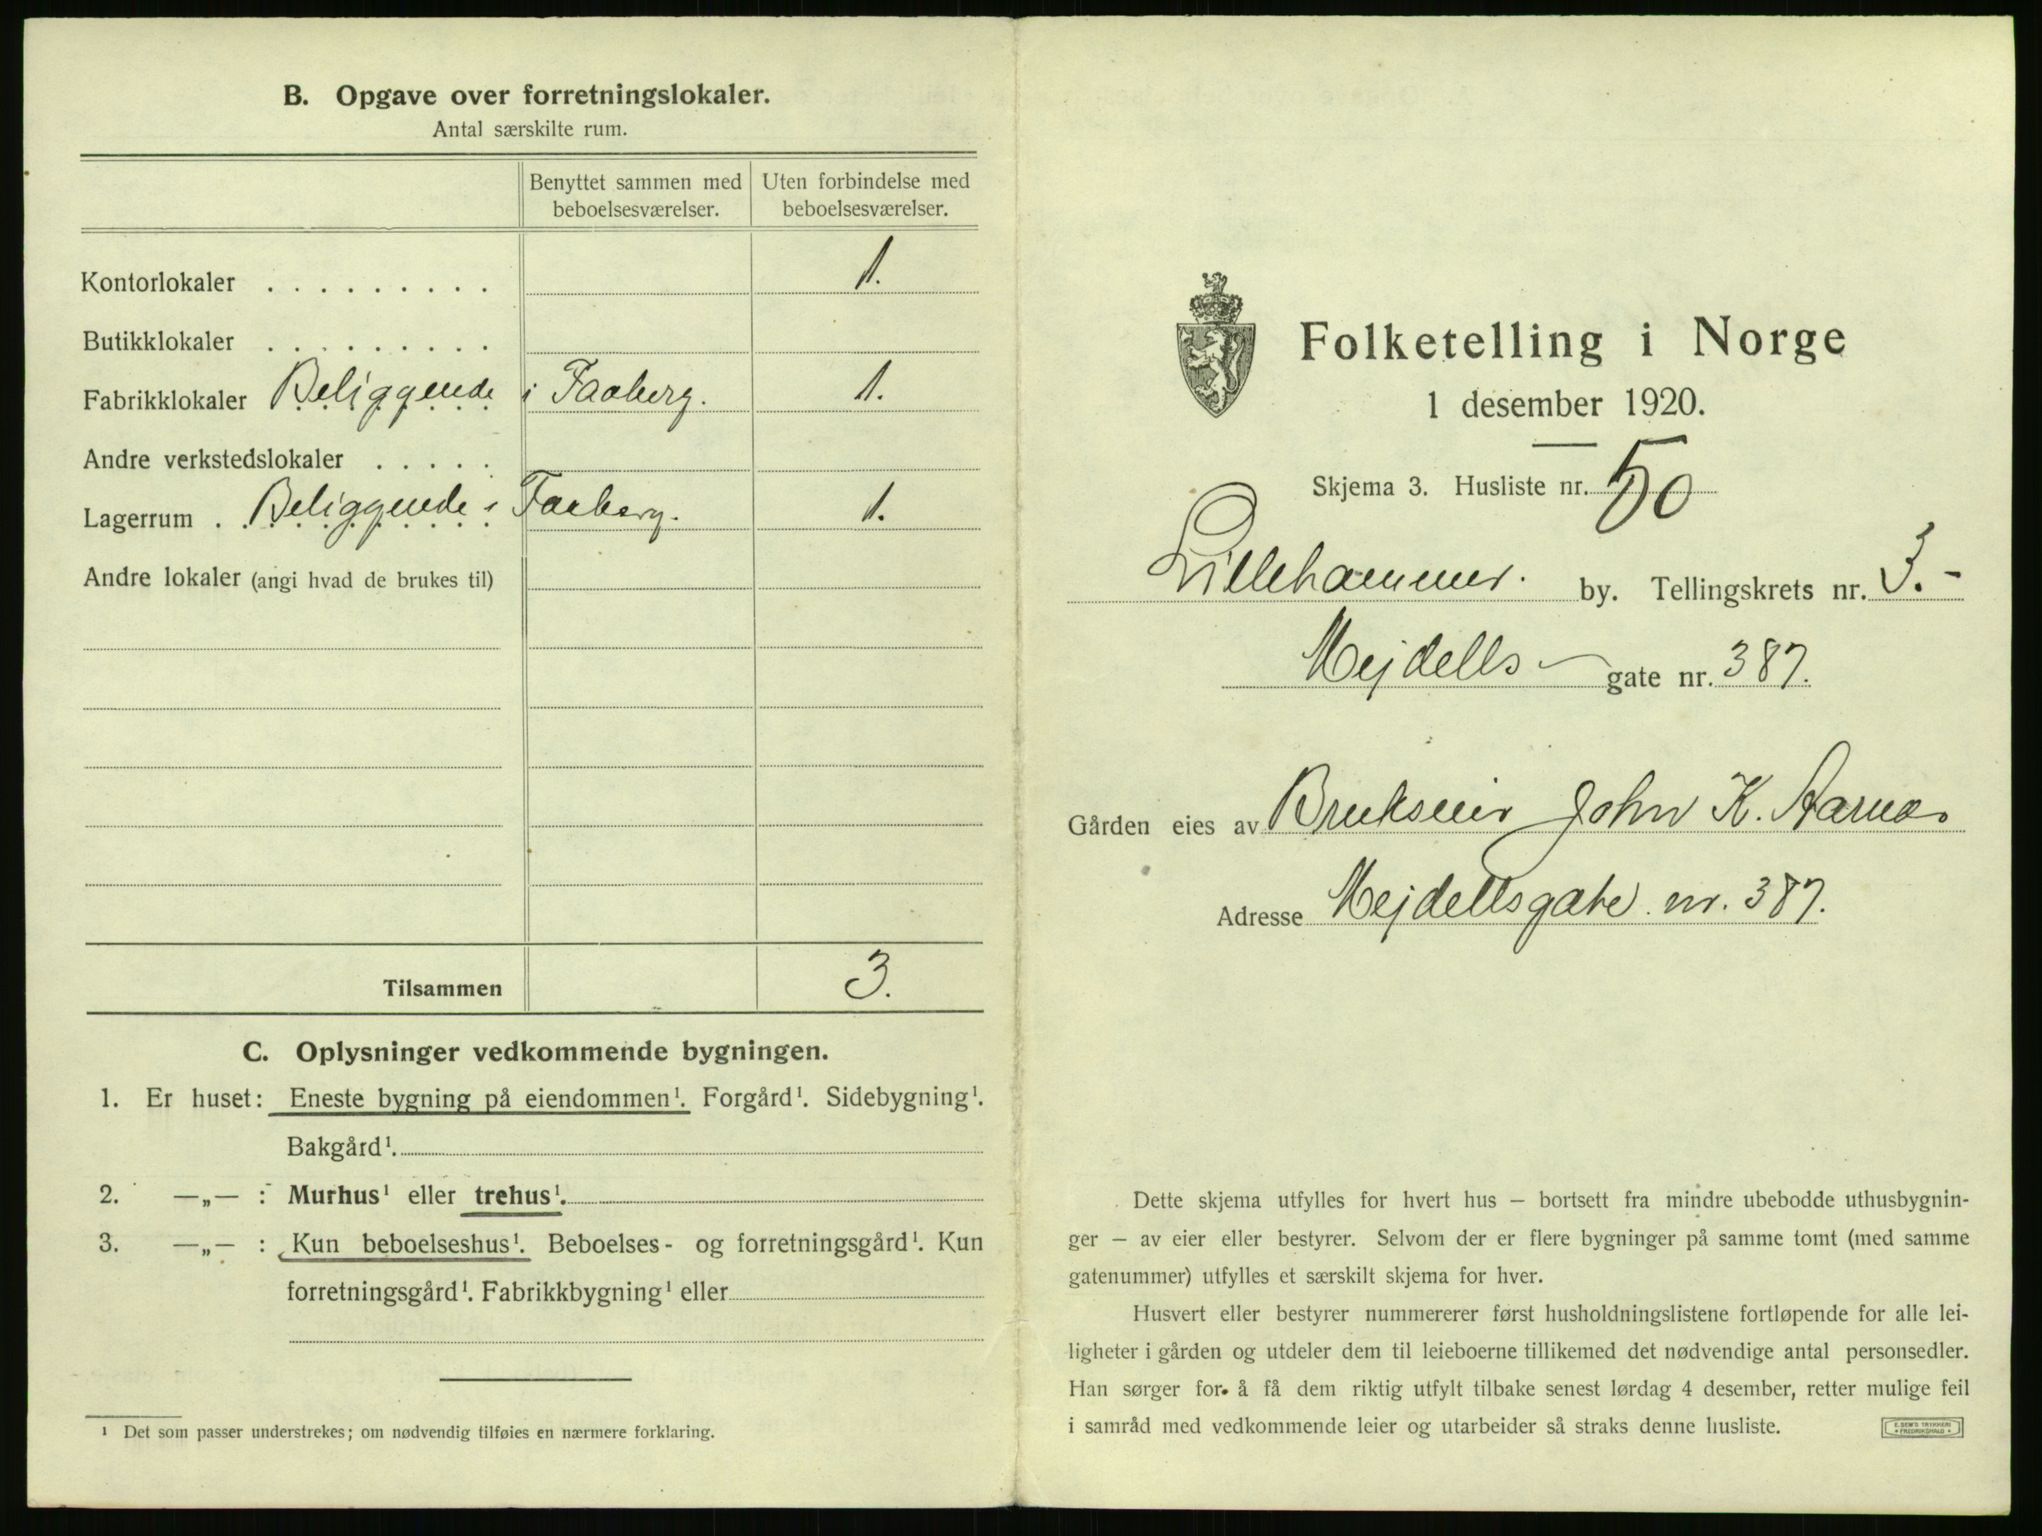 B. Opgave over forretningslokaler.
Antal særskilte rum.
Benyttet sammen med beboelsesværelser.
Uten forbindelse med beboelsesværelser.
Kontorlokaler . . . . . . . . . 1.
Butikklokaler . . . . . . . . .
Fabrikklokaler Beliggende i Faaberg. 1.
Andre verkstedslokaler . . . . .
Lagerrum . . Beliggende i Faaberg. 1.
Andre lokaler (angi hvad de brukes til)
Tilsammen 3.
C. Oplysninger vedkommende bygningen.
1. Er huset: Eneste bygning på eiendommen¹. Forgård¹. Sidebygning¹.
Bakgård¹.
2. —„— : Murhus¹ eller trehus¹.
3. —„— : Kun beboelseshus¹. Beboelses- og forretningsgård¹. Kun
forretningsgård¹. Fabrikkbygning¹ eller
¹ Det som passer understrekes; om nødvendig tilføies en nærmere forklaring.
Folketelling i Norge
1 desember 1920.
Skjema 3. Husliste nr. 50
Lillehammer. by. Tellingskrets nr. 3.-
Mejdells gate nr. 387.
Gården eies av Brukseier John K. Aarnæs
Adresse Mejdellsgate nr. 387.
Dette skjema utfylles for hvert hus — bortsett fra mindre ubebodde uthusbygnin-
ger — av eier eller bestyrer. Selvom der er flere bygninger på samme tomt (med samme
gatenummer) utfylles et særskilt skjema for hver.
Husvert eller bestyrer nummererer først husholdningslistene fortløpende for alle lei-
ligheter i gården og utdeler dem til leieboerne tillikemed det nødvendige antal personsedler.
Han sørger for å få dem riktig utfylt tilbake senest lørdag 4 desember, retter mulige feil
i samråd med vedkommende leier og utarbeider så straks denne husliste.
E. SEM'S TRYKKERI
FREDRIKSHALD